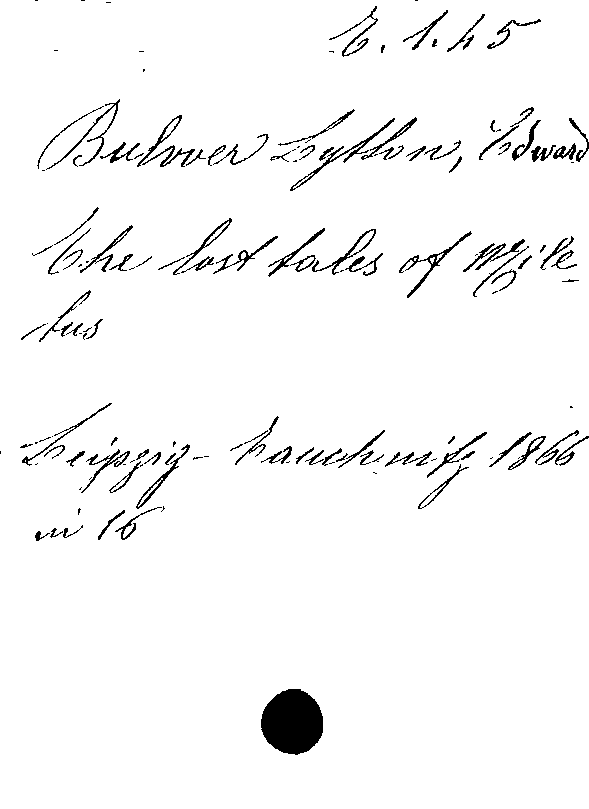 E. 1. 45
Bulwer Lytton, Edward
The lost tales of Mile-
tus
Leipzig - Tauchnitz 1866
in 16